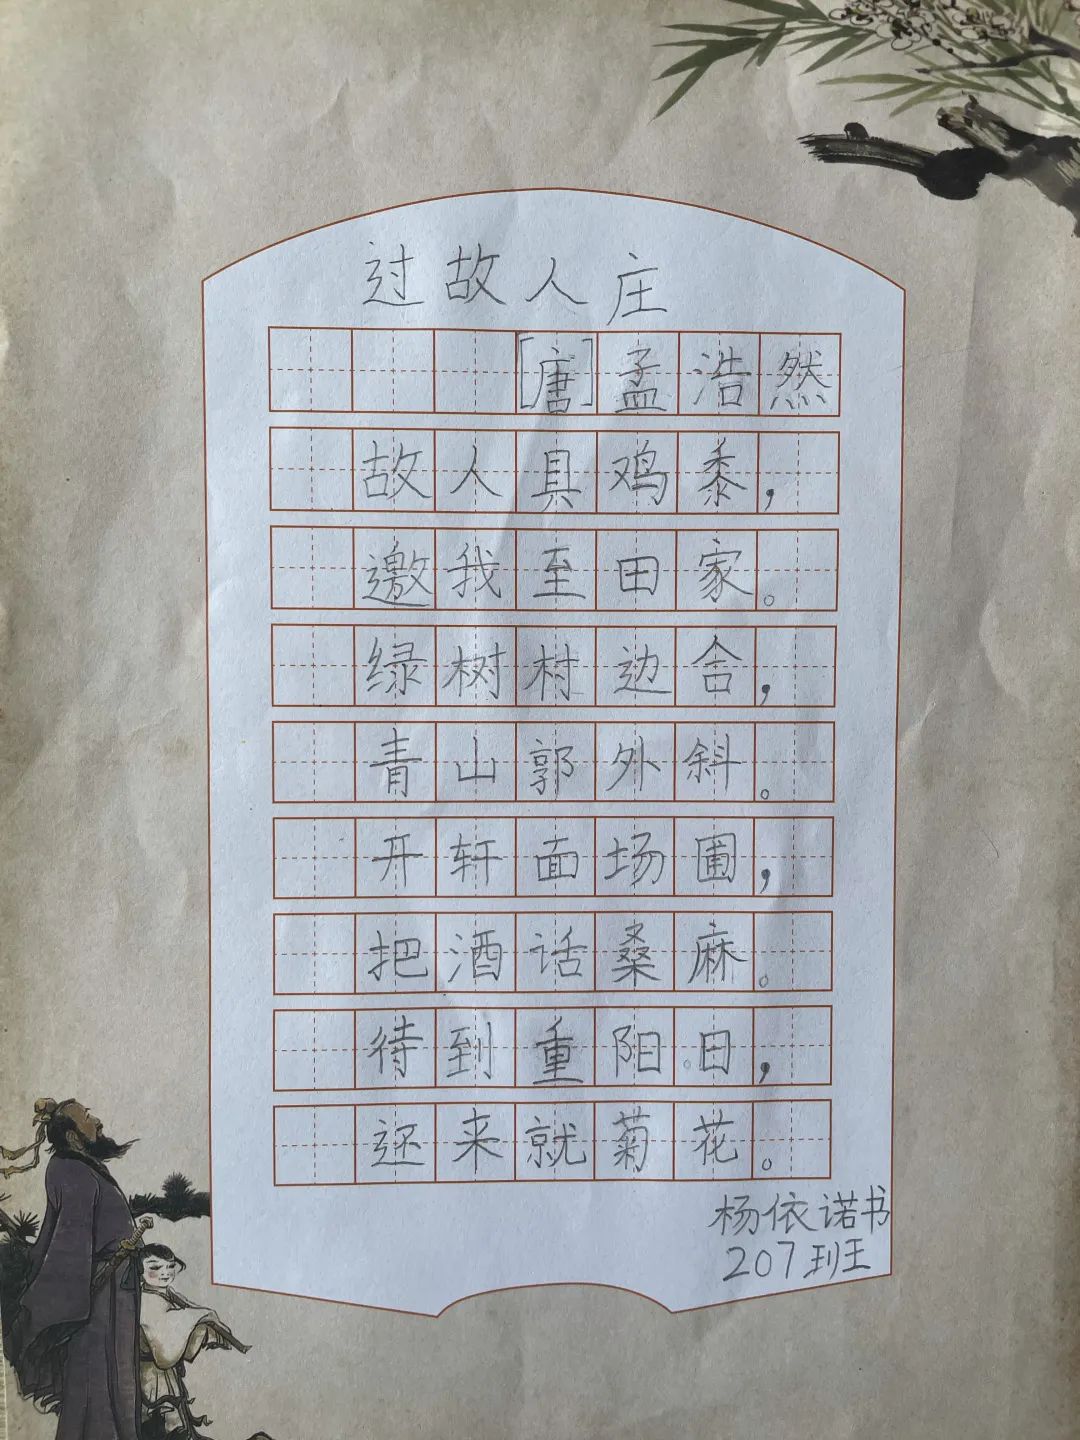 过故人庄
[唐]孟浩然
故人具鸡黍,
邀我至田家。
绿树村边舍,
青山郭外斜。
开轩面场圃,
把酒话桑麻。
待到重阳日,
还来就菊花。
杨依诺书
207班